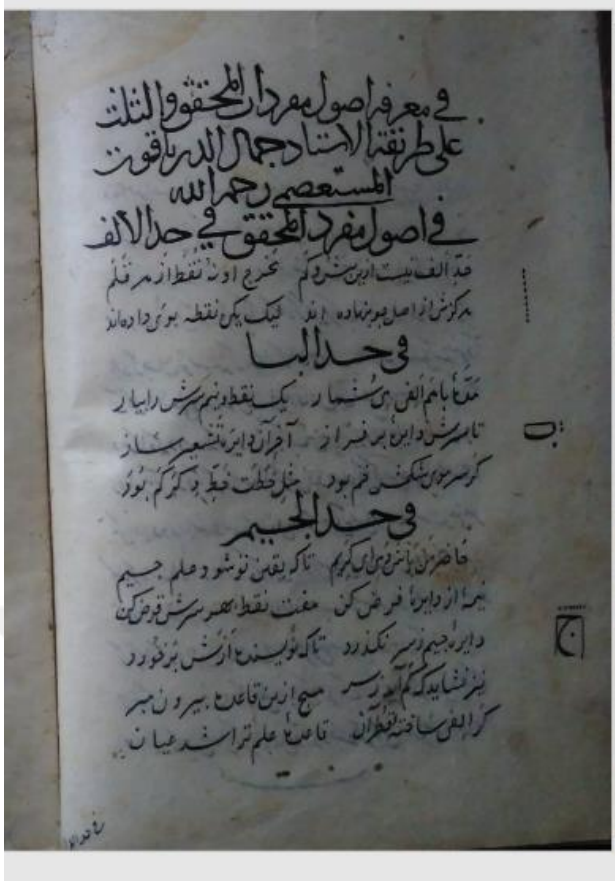 في معرفة اصول مفردات المحقق والثلث
على طريقة الاستاد جمال الدين ياقوت
المستعصمي رحمه الله
في اصول مفرد المحقق في حد الالف
قد الف نیست ازین بیش و کم مخرج او نه نقط از هر قلم
مرکزش از اصل بو بنهاده اند لیک یکی نقطه بوی داده‌اند
فى حد البا
مدهٔ با هم الفی می شمار یک نقط و نیم سرش را بیار
تا سرش دایرهٔ بر فراز آخر آن دایره تشعیر ساز
گر سر موی کم بود مثل خطت خط دگر کم بود
فى حد الجيم
حاضر من باش دمی ای کریم تا که یقین تو شود علم جیم
نیمهٔ از دایرهٔ فرض کن هفت نقط بهر سرش قرض کن
دایرهٔ جیم ز سر نگذرد تا که نویسنده ازش بر خورد
نیز نشاید که کم آید ز سر هیچ ازین قاعده بیرون مبر
گر الفی ساخته قطر آن قاعدهٔ علم ترا شد عیان
ج